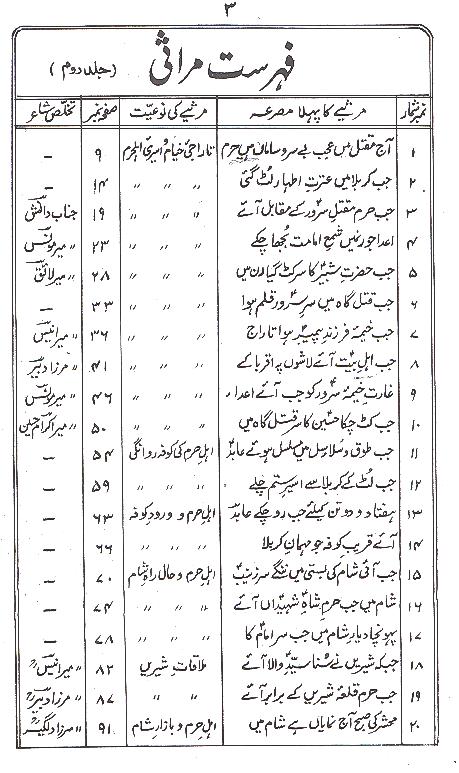 ۳
فہرست مراثی (جلد دوم)
نمبر شمار مرثیے کا پہلا مصرعہ مرثیے کی نوعیت صفحہ نمبر تخلص شاعر
۱ آج مقتل میں عجب بے سر و سامان ہیں حرم تاراجیٔ خیام و اسیری اہلِ حرم ۹ _
۲ جب کربلا میں عزتِ اطہار لٹ گئی " " " ۱۴ _
۳ جب حرم مقتلِ سرور کے مقابل آئے " " " ۱۹ جناب
۴ اعدا جو رن میں شمعِ امامت بجھا چکے " " " ۲۳ " میر مونس
۵ جب حضرتِ شبیر کا سر کٹ گیا رن میں " " " ۲۸ " میر لائق
۶ جب قتل گاہ میں سرِ سرور قلم ہوا " " " ۳۳ _
۷ جب خیمۂ فرزندِ پیمبر ہوا تاراج " " " ۳۶ " میر انیس
۸ جب اہلِ بیت آئے لاشوں پر اقربا کے " " " ۴۱ " مرزا دبیر
۹ غارتِ خیمۂ سرور کو جب آئے اعداء " " " ۴۶ " میر مونس
۱۰ جب کٹ چکا حسین کا سر قتل گاہ میں " " " ۵۰ " میر اکرام حسین
۱۱ جب طوق و سلاسل میں مسلسل ہوئے عابد اہلِ حرم کی کوفہ روانگی ۵۴ _
۱۲ جب لٹ کے کربلا سے اسیرِ ستم چلے " " " ۵۹ _
۱۳ ہفتاد و دو تن کیلئے جب رو چکے عابد اہلِ حرم و ورودِ کوفہ ۶۳ _
۱۴ آئے قریبِ کوفہ جو مہمانِ کربلا " " " ۶۶ _
۱۵ جب آئی شام کی بستی میں ننگے سر زینب اہلِ حرم و حال راہِ شام ۷۰ _
۱۶ شام میں جب حرمِ شاہِ شہیداں آئے " " " ۷۴ _
۱۷ پہونچا دیارِ شام میں جب سر امام کا " " " ۷۸ _
۱۸ جبکہ شیریں نے سنا سیدِ والا آئے ملاقاتِ شیریں ۸۲ " میر انیس
۱۹ جب حرم قلعۂ شیریں کے برابر آئے " " ۸۷ " مرزا دبیر
۲۰ محشر کی صبح آج نمایاں ہے شام میں اہلِ حرم و بازارِ شام ۹۱ " مرزا دلگیر